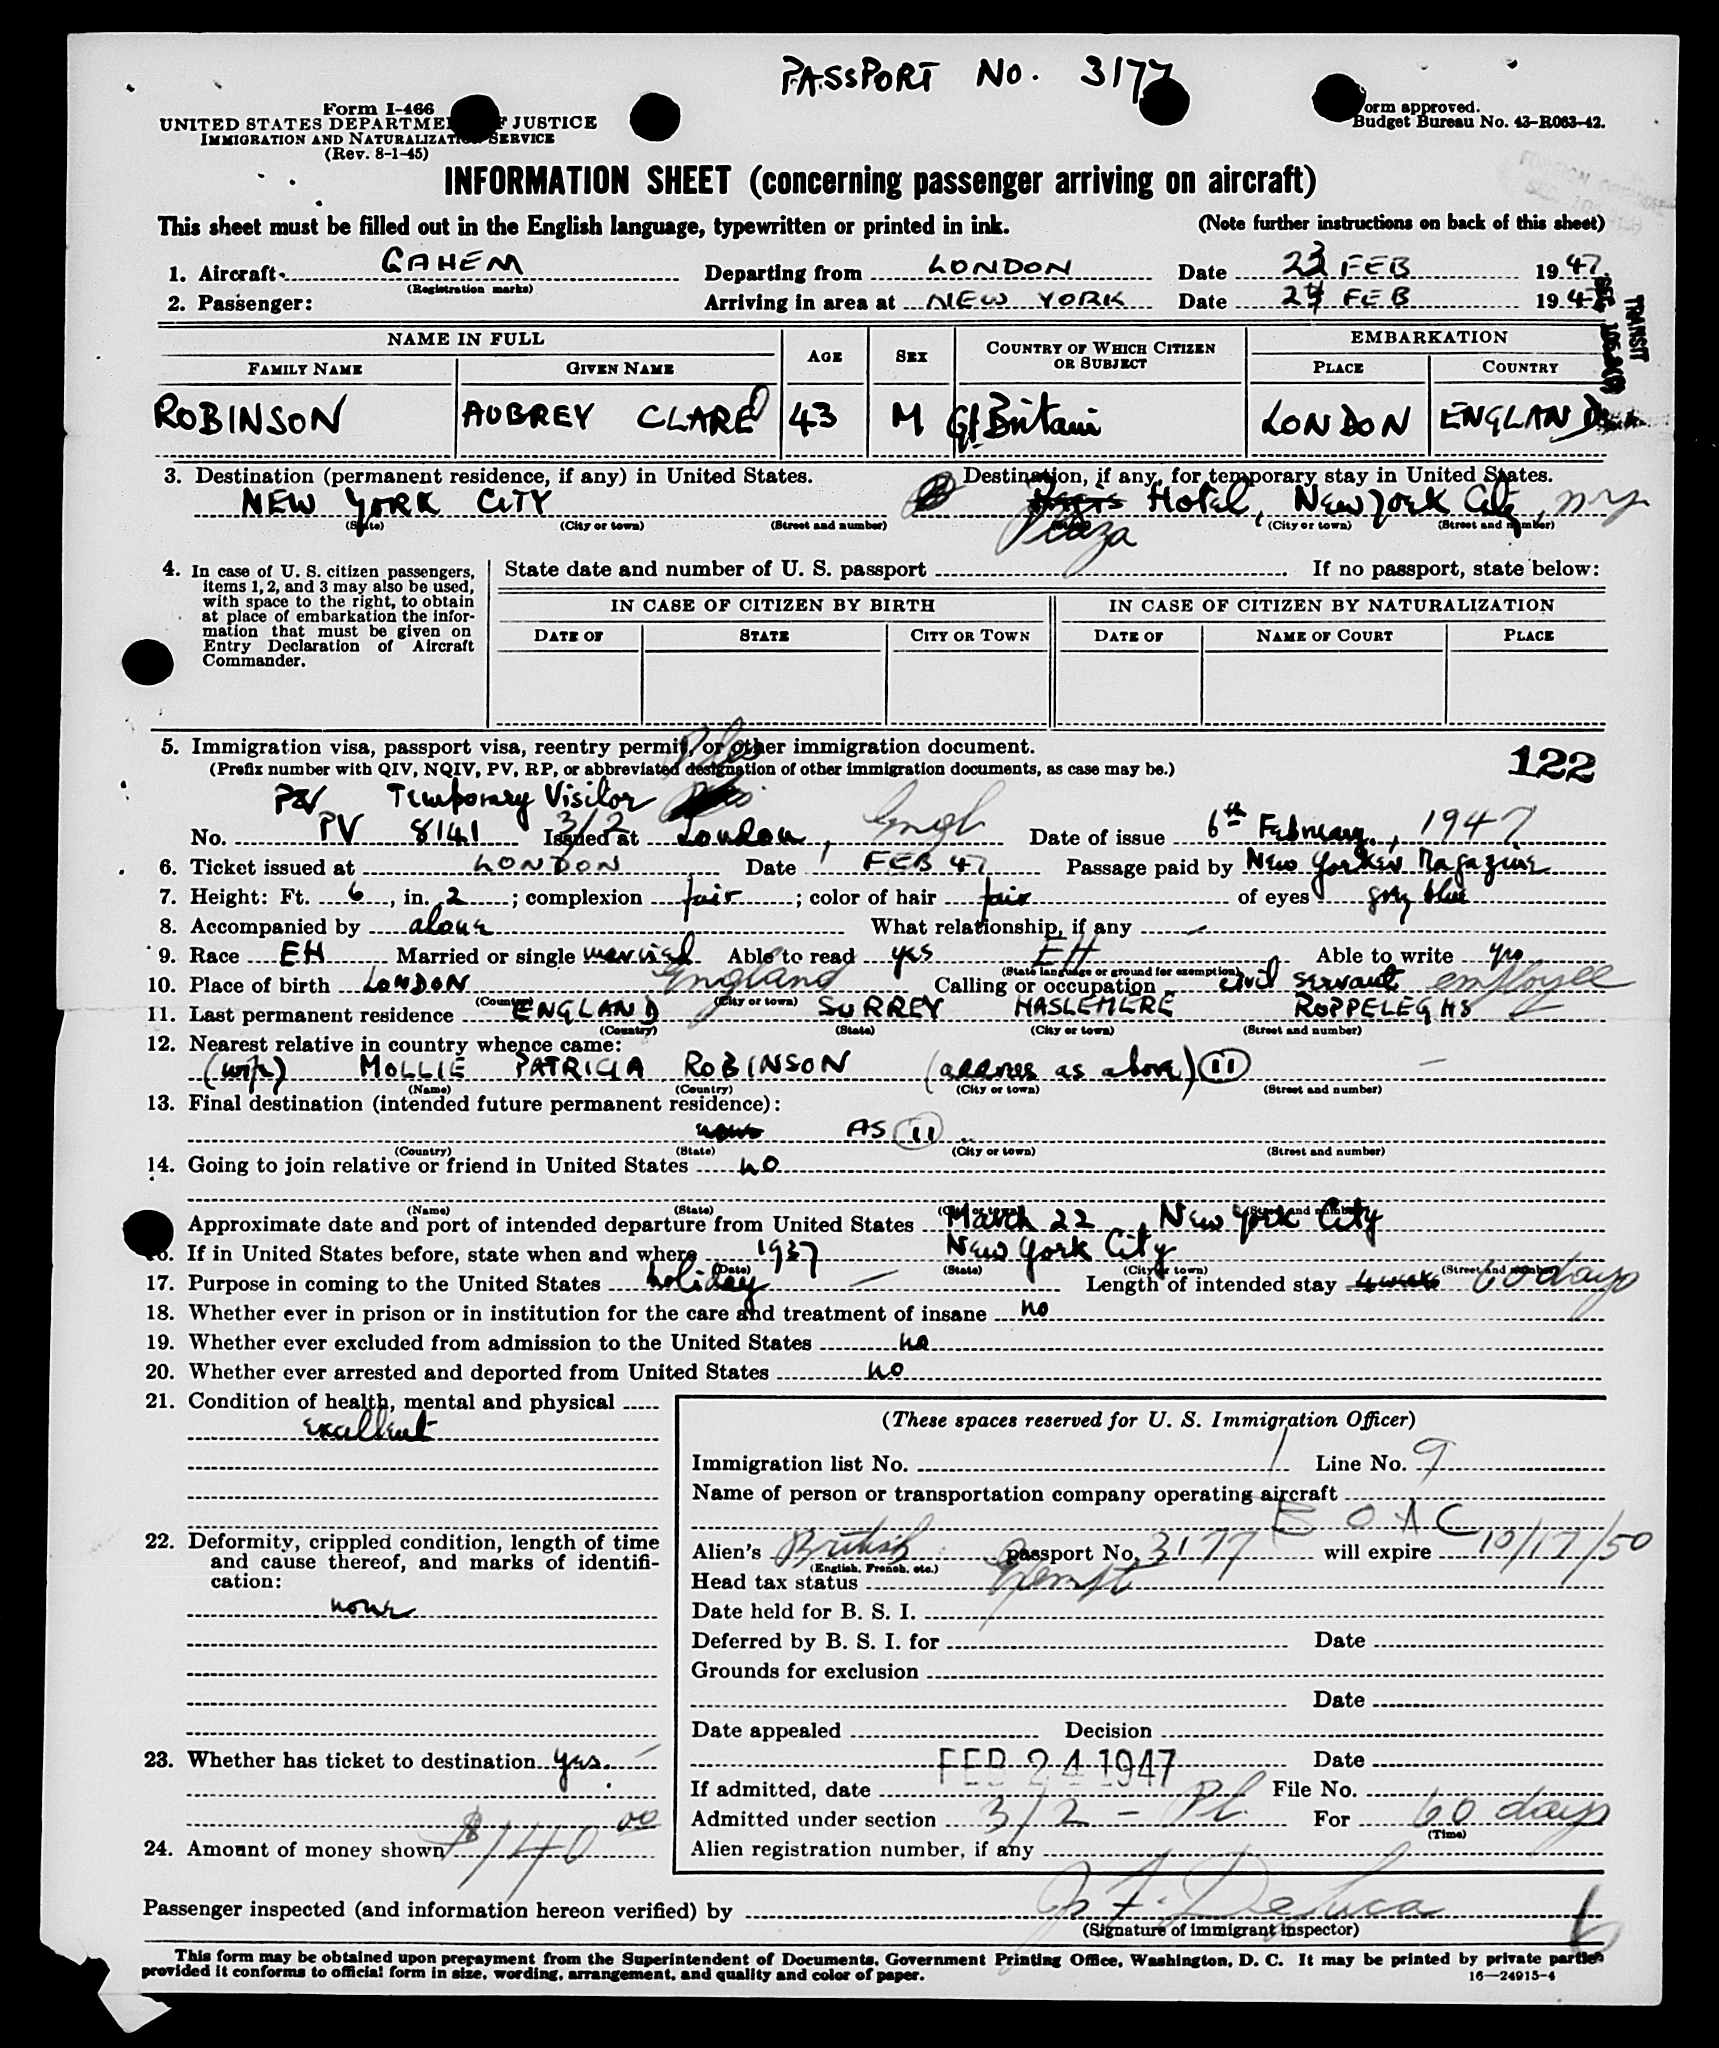 PASSPORT No. 3177
Form I-466
UNITED STATES DEPARTMENT OF JUSTICE
IMMIGRATION AND NATURALIZATION SERVICE
(Rev. 8-1-45)
orm approved.
Budget Bureau No. 43-R063-42.
INFORMATION SHEET (concerning passenger arriving on aircraft)
This sheet must be filled out in the English language, typewritten or printed in ink. (Note further instructions on back of this sheet)
1. Aircraft GAHEM Departing from LONDON Date 23 FEB 1947
(Registration marks)
2. Passenger: Arriving in area at NEW YORK Date 24 FEB 1947
TRANSIT
NAME IN FULL AGE SEX COUNTRY OF WHICH CITIZEN OR SUBJECT EMBARKATION
FAMILY NAME GIVEN NAME PLACE COUNTRY
ROBINSON AUBREY CLARE 43 M Gt. Britain LONDON ENGLAND
3. Destination (permanent residence, if any) in United States. Destination, if any, for temporary stay in United States.
NEW YORK CITY Hotel, New York City, N.Y.
(State) (City or town) (Street and number) (City or town) (Street and number)
Plaza
4. In case of U. S. citizen passengers, items 1, 2, and 3 may also be used, with space to the right, to obtain at place of embarkation the information that must be given on Entry Declaration of Aircraft Commander.
State date and number of U. S. passport . If no passport, state below:
IN CASE OF CITIZEN BY BIRTH IN CASE OF CITIZEN BY NATURALIZATION
DATE OF STATE CITY OR TOWN DATE OF NAME OF COURT PLACE
5. Immigration visa, passport visa, reentry permit, or other immigration document.
(Prefix number with QIV, NQIV, PV, RP, or abbreviated designation of other immigration documents, as case may be.)
122
PV Temporary Visitor
No. PV 8141 3/2 Issued at London, Engl Date of issue 6th February, 1947
6. Ticket issued at LONDON Date FEB 47 Passage paid by New Yorker Magazine
7. Height: Ft. 6, in. 2; complexion fair; color of hair fair of eyes grey blue
8. Accompanied by alone What relationship, if any —
9. Race EH Married or single married Able to read yes EH Able to write yes
(State language or ground for exemption)
10. Place of birth LONDON England Calling or occupation civil servant employee
(Country) (City or town)
11. Last permanent residence ENGLAND SURREY HASLEMERE ROPPELEGHS
(Country) (State) (City or town) (Street and number)
12. Nearest relative in country whence came:
(wife) MOLLIE PATRICIA ROBINSON (address as above) 11
(Name) (Country) (City or town) (Street and number)
13. Final destination (intended future permanent residence):
none AS 11
(Country) (State) (City or town) (Street and number)
14. Going to join relative or friend in United States no
(Name) (State) (City or town) (Street and number)
Approximate date and port of intended departure from United States March 22, New York City
16. If in United States before, state when and where 1937 New York City
(Date) (State) (City or town) (Street and number)
17. Purpose in coming to the United States holiday — Length of intended stay 4 weeks 60 days
18. Whether ever in prison or in institution for the care and treatment of insane no
19. Whether ever excluded from admission to the United States no
20. Whether ever arrested and deported from United States no
21. Condition of health, mental and physical
excellent
22. Deformity, crippled condition, length of time and cause thereof, and marks of identification:
none
23. Whether has ticket to destination yes.
24. Amount of money shown $140 00
(These spaces reserved for U. S. Immigration Officer)
Immigration list No. 1 Line No. 9
Name of person or transportation company operating aircraft
B O A C
Alien's British passport No. 3177 will expire 10/17/50
(English, French, etc.)
Head tax status Exempt
Date held for B. S. I.
Deferred by B. S. I. for Date
Grounds for exclusion
Date
Date appealed Decision
Date
If admitted, date FEB 24 1947 File No.
Admitted under section 3/2 - Pl. For 60 days
(Time)
Alien registration number, if any
Passenger inspected (and information hereon verified) by J. F. DeLuca
(Signature of immigrant inspector)
6
This form may be obtained upon prepayment from the Superintendent of Documents, Government Printing Office, Washington, D. C. It may be printed by private parties
provided it conforms to official form in size, wording, arrangement, and quality and color of paper. 16—24915-4